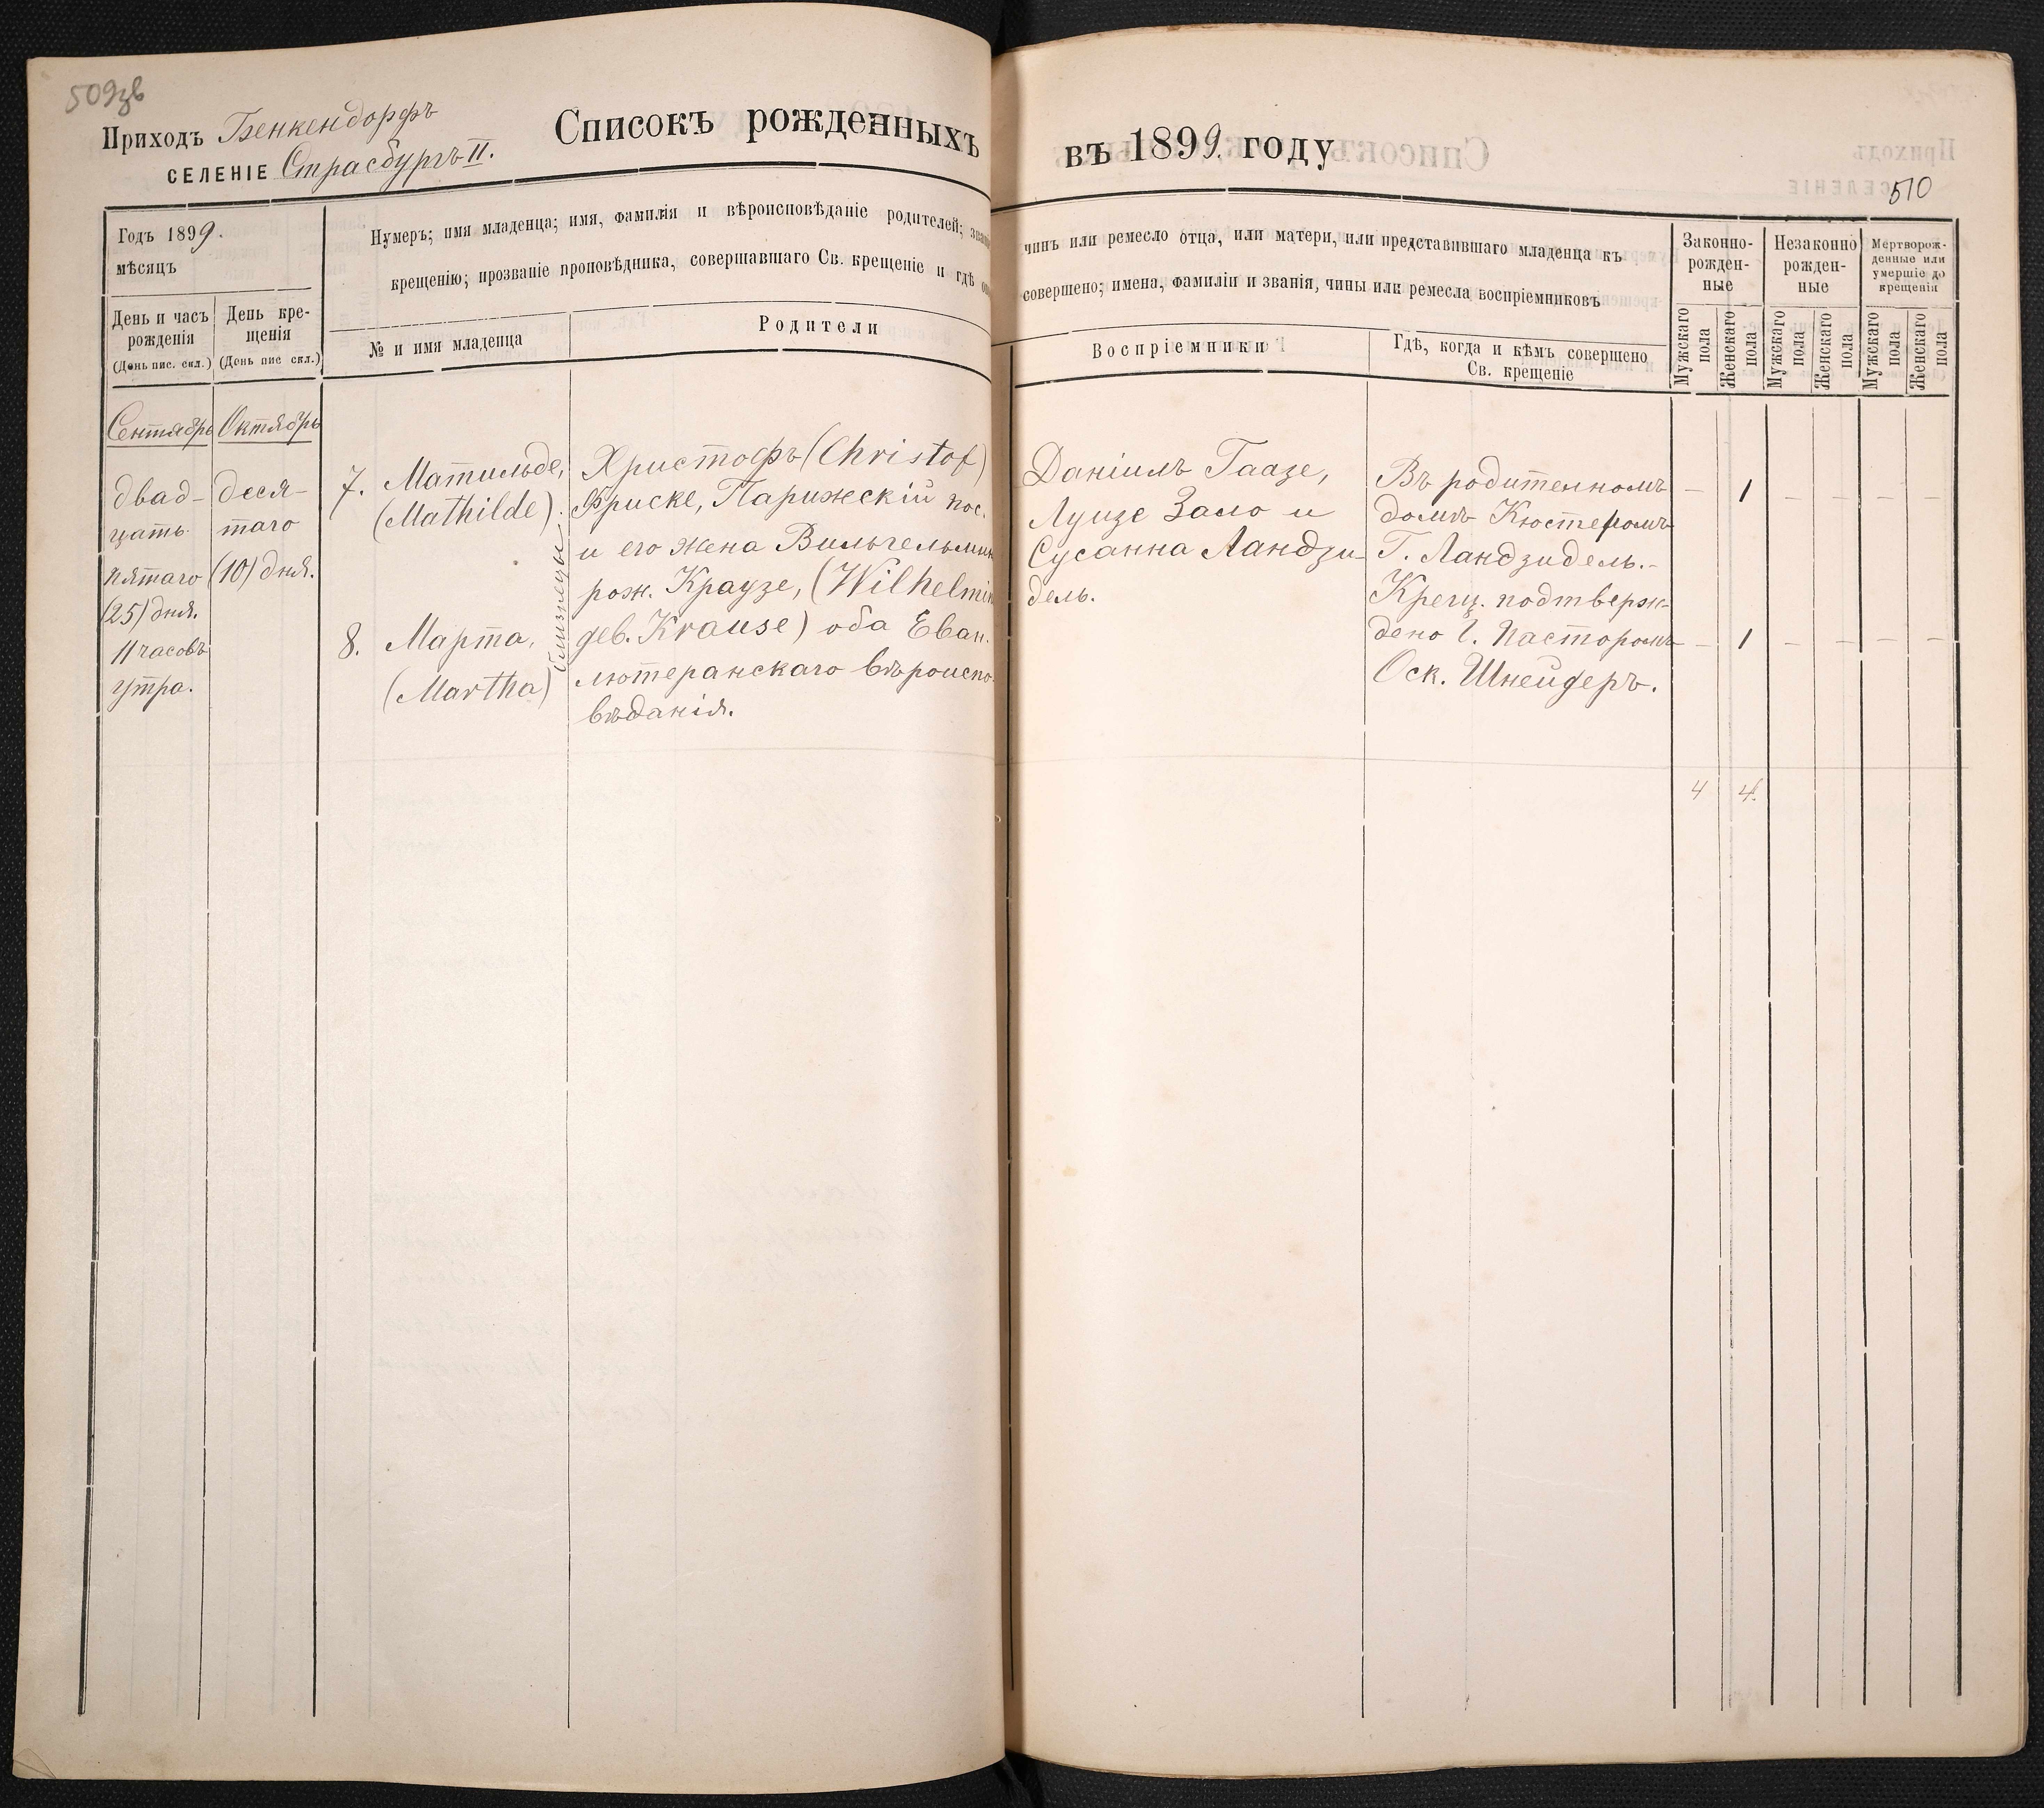 509зв
Приходъ Бенкендорфъ
СЕЛЕНІЕ Страсбургъ II.
Списокъ рожденныхъ
въ 1899. году
510
Годъ 1899.
мѣсяцъ
День и часъ
рожденія
(День пис. скл.)
День кре-
щенія
(День пис скл.)
Нумеръ; имя младенца; имя, фамилія и вѣроисповѣданіе родителей;
крещенію; прозваніе проповѣдника, совершавшаго Св. крещеніе и гдѣ
№ и имя младенца
Родители
чинъ или ремесло отца, или матери, или представившаго младенца къ
совершено; имена, фамиліи и званія, чины или ремесла воспріемниковъ
Воспріемники
Гдѣ, когда и кѣмъ совершено
Св. крещеніе
Законно-
рожден-
ные
Незаконно
рожден-
ные
Мертворож-
денные или
умершіе до
крещенія
Мужскаго
пола
Женскаго
пола
Мужскаго
пола
Женскаго
пола
Мужскаго
пола
Женскаго
пола
Сентябрь
двад-
цать
пятаго
(25) дня.
11 часовъ
утра.
Октябрь
деся-
таго
(10) дня.
7. Матильде,
(Mathilde)
8. Марта,
(Martha)
близнецы
Христофъ (Christof)
Фриске, Парижскій пос.
и его жена Вильгельмин
рож. Краузе, (Wilhelmin
геб. Krause) оба Еван.
лютеранскаго вѣроиспо-
вѣданія.
Даніилъ Гаазе,
Луизе Зало и
Сусанна Ландзи-
дель.
Въ родителномъ
домѣ Кюстеромъ
Г. Ландзидель.-
Крещ. подтверж-
дено Г. Пасторомъ
Оск. Шнейдеръ.
– 1 – – – –
– 1 – – – –
4 4.